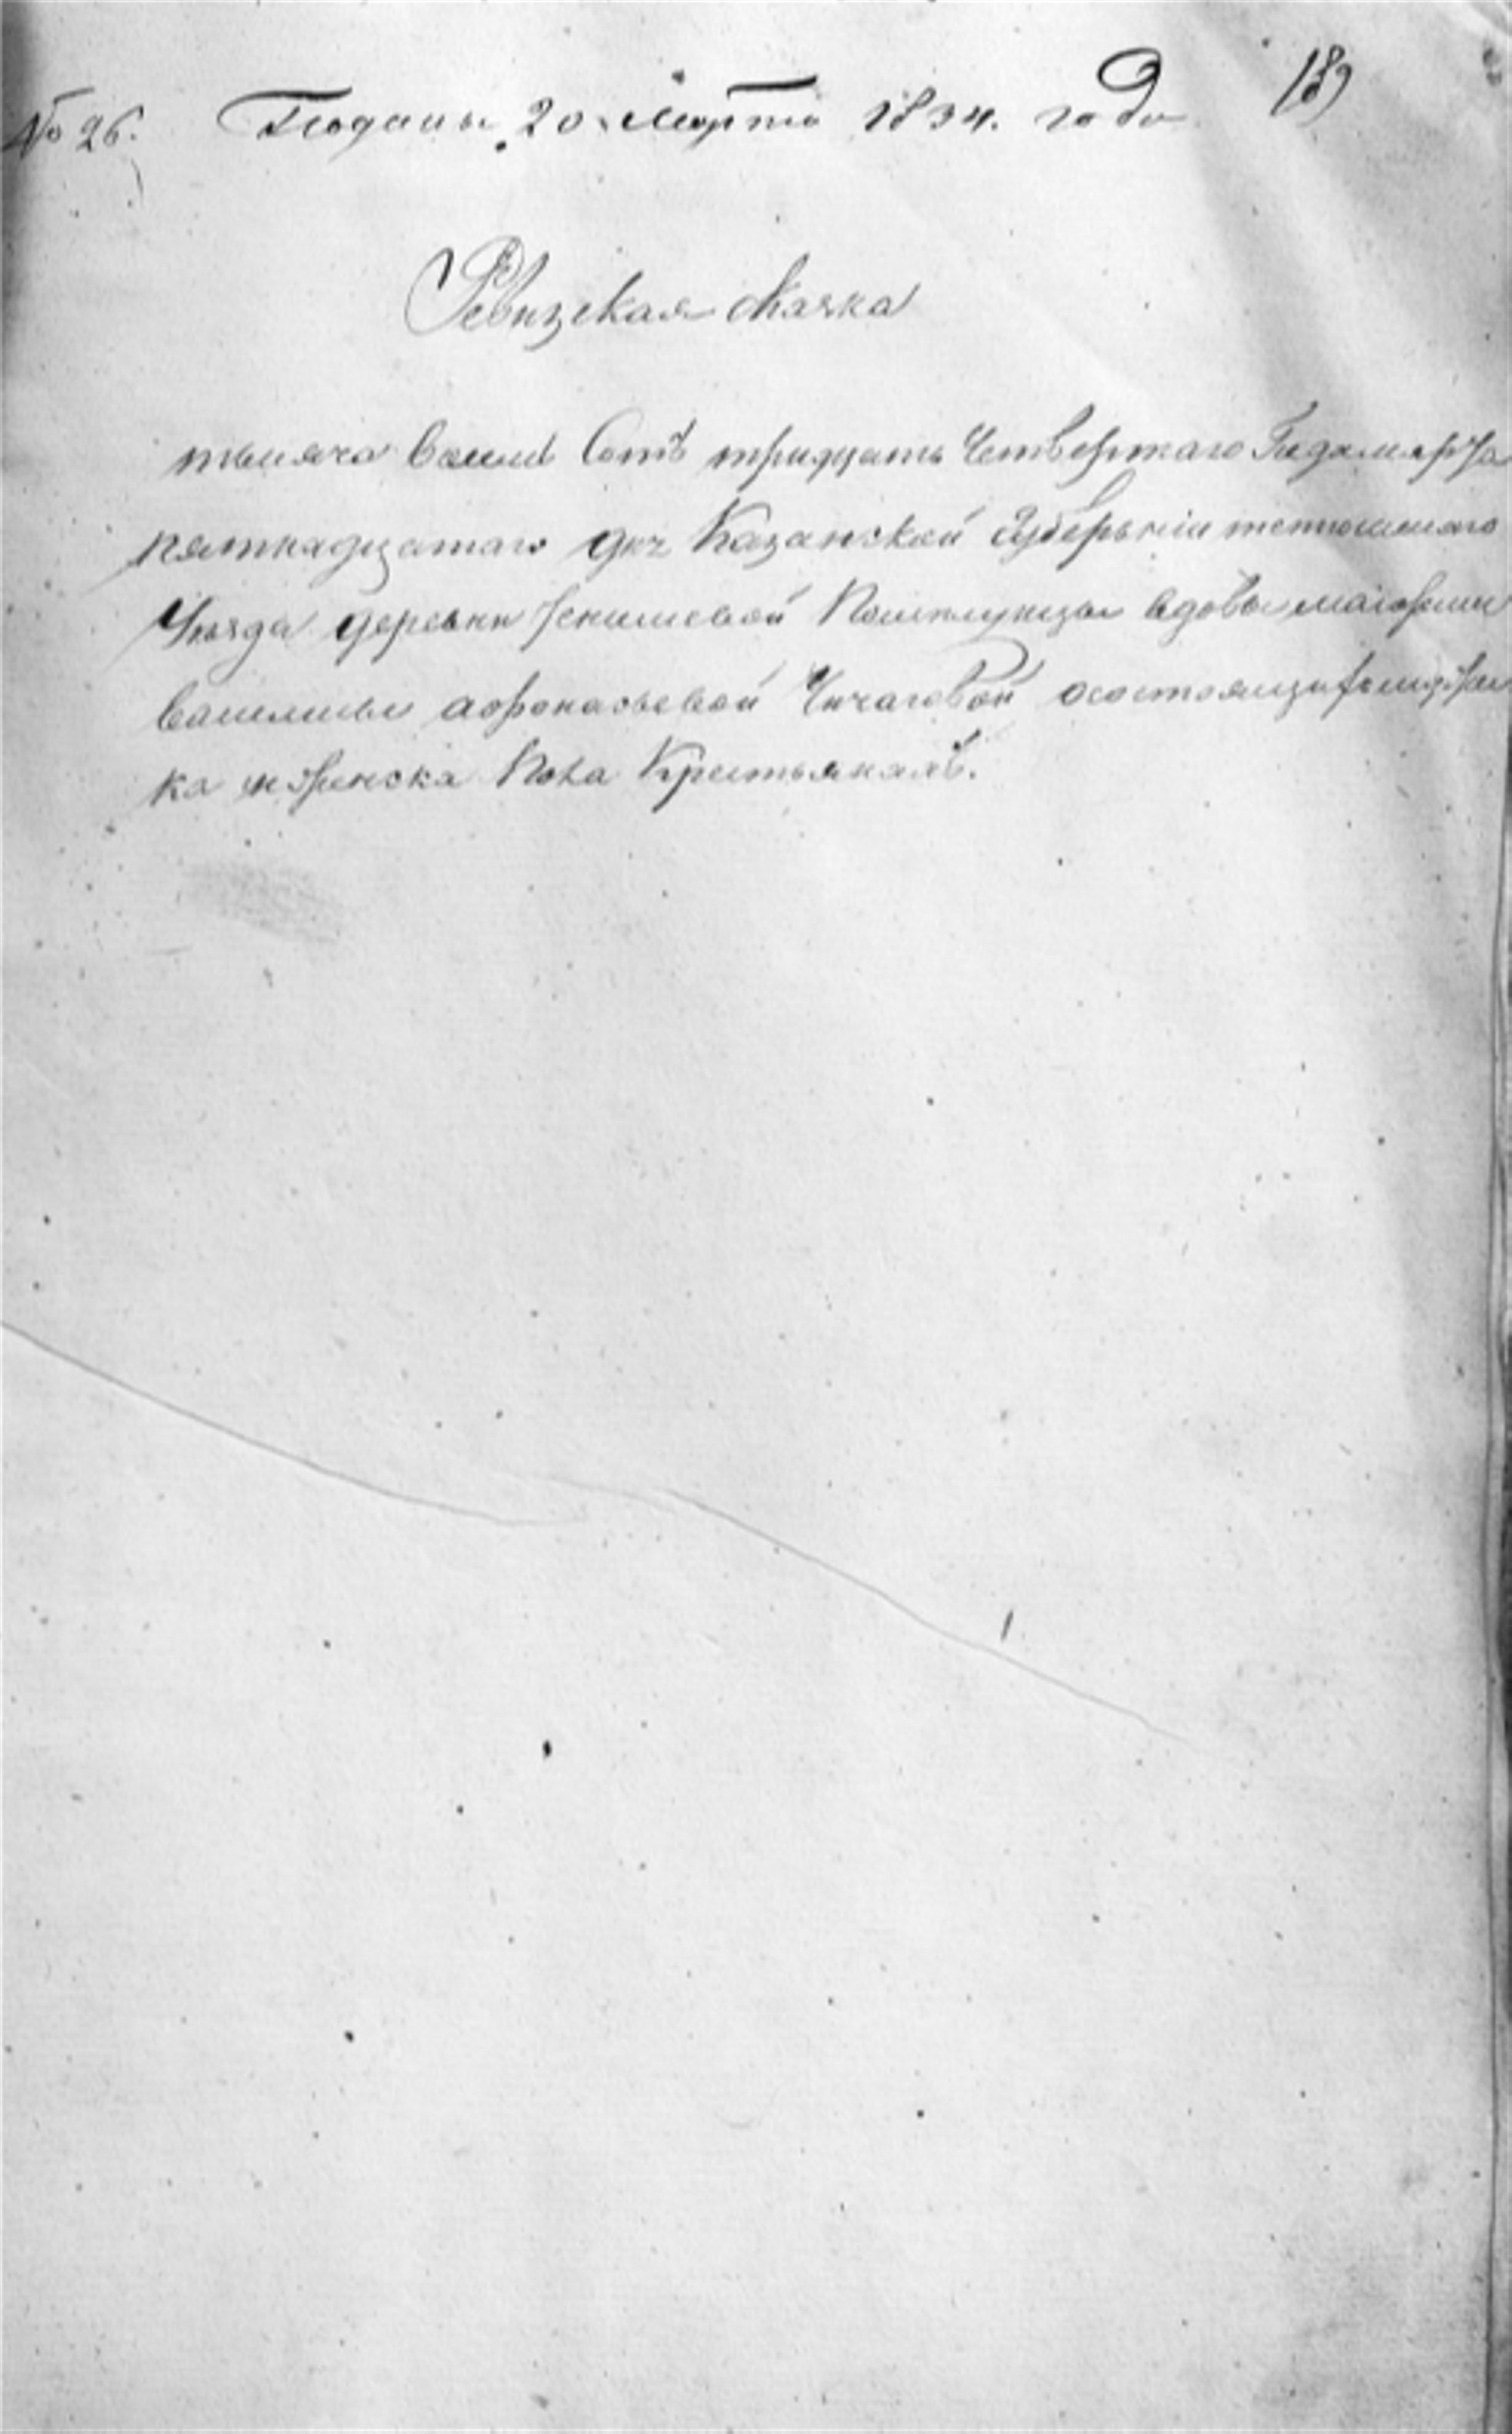 № 26. Поданы 20 Марта 1834. года 189
Ревизская скаска
тысяча восемь Сотъ тридцать Четвертаго Года марта
пятнадцатаго дня Казанской Губерьніи тетюшскаго
Уѣзда деревни Помещицы вдовы маіорши
василисы афонасьевой Чичаговой осостоящихъ мужеска
ка иженска Пола Крестьянахъ.